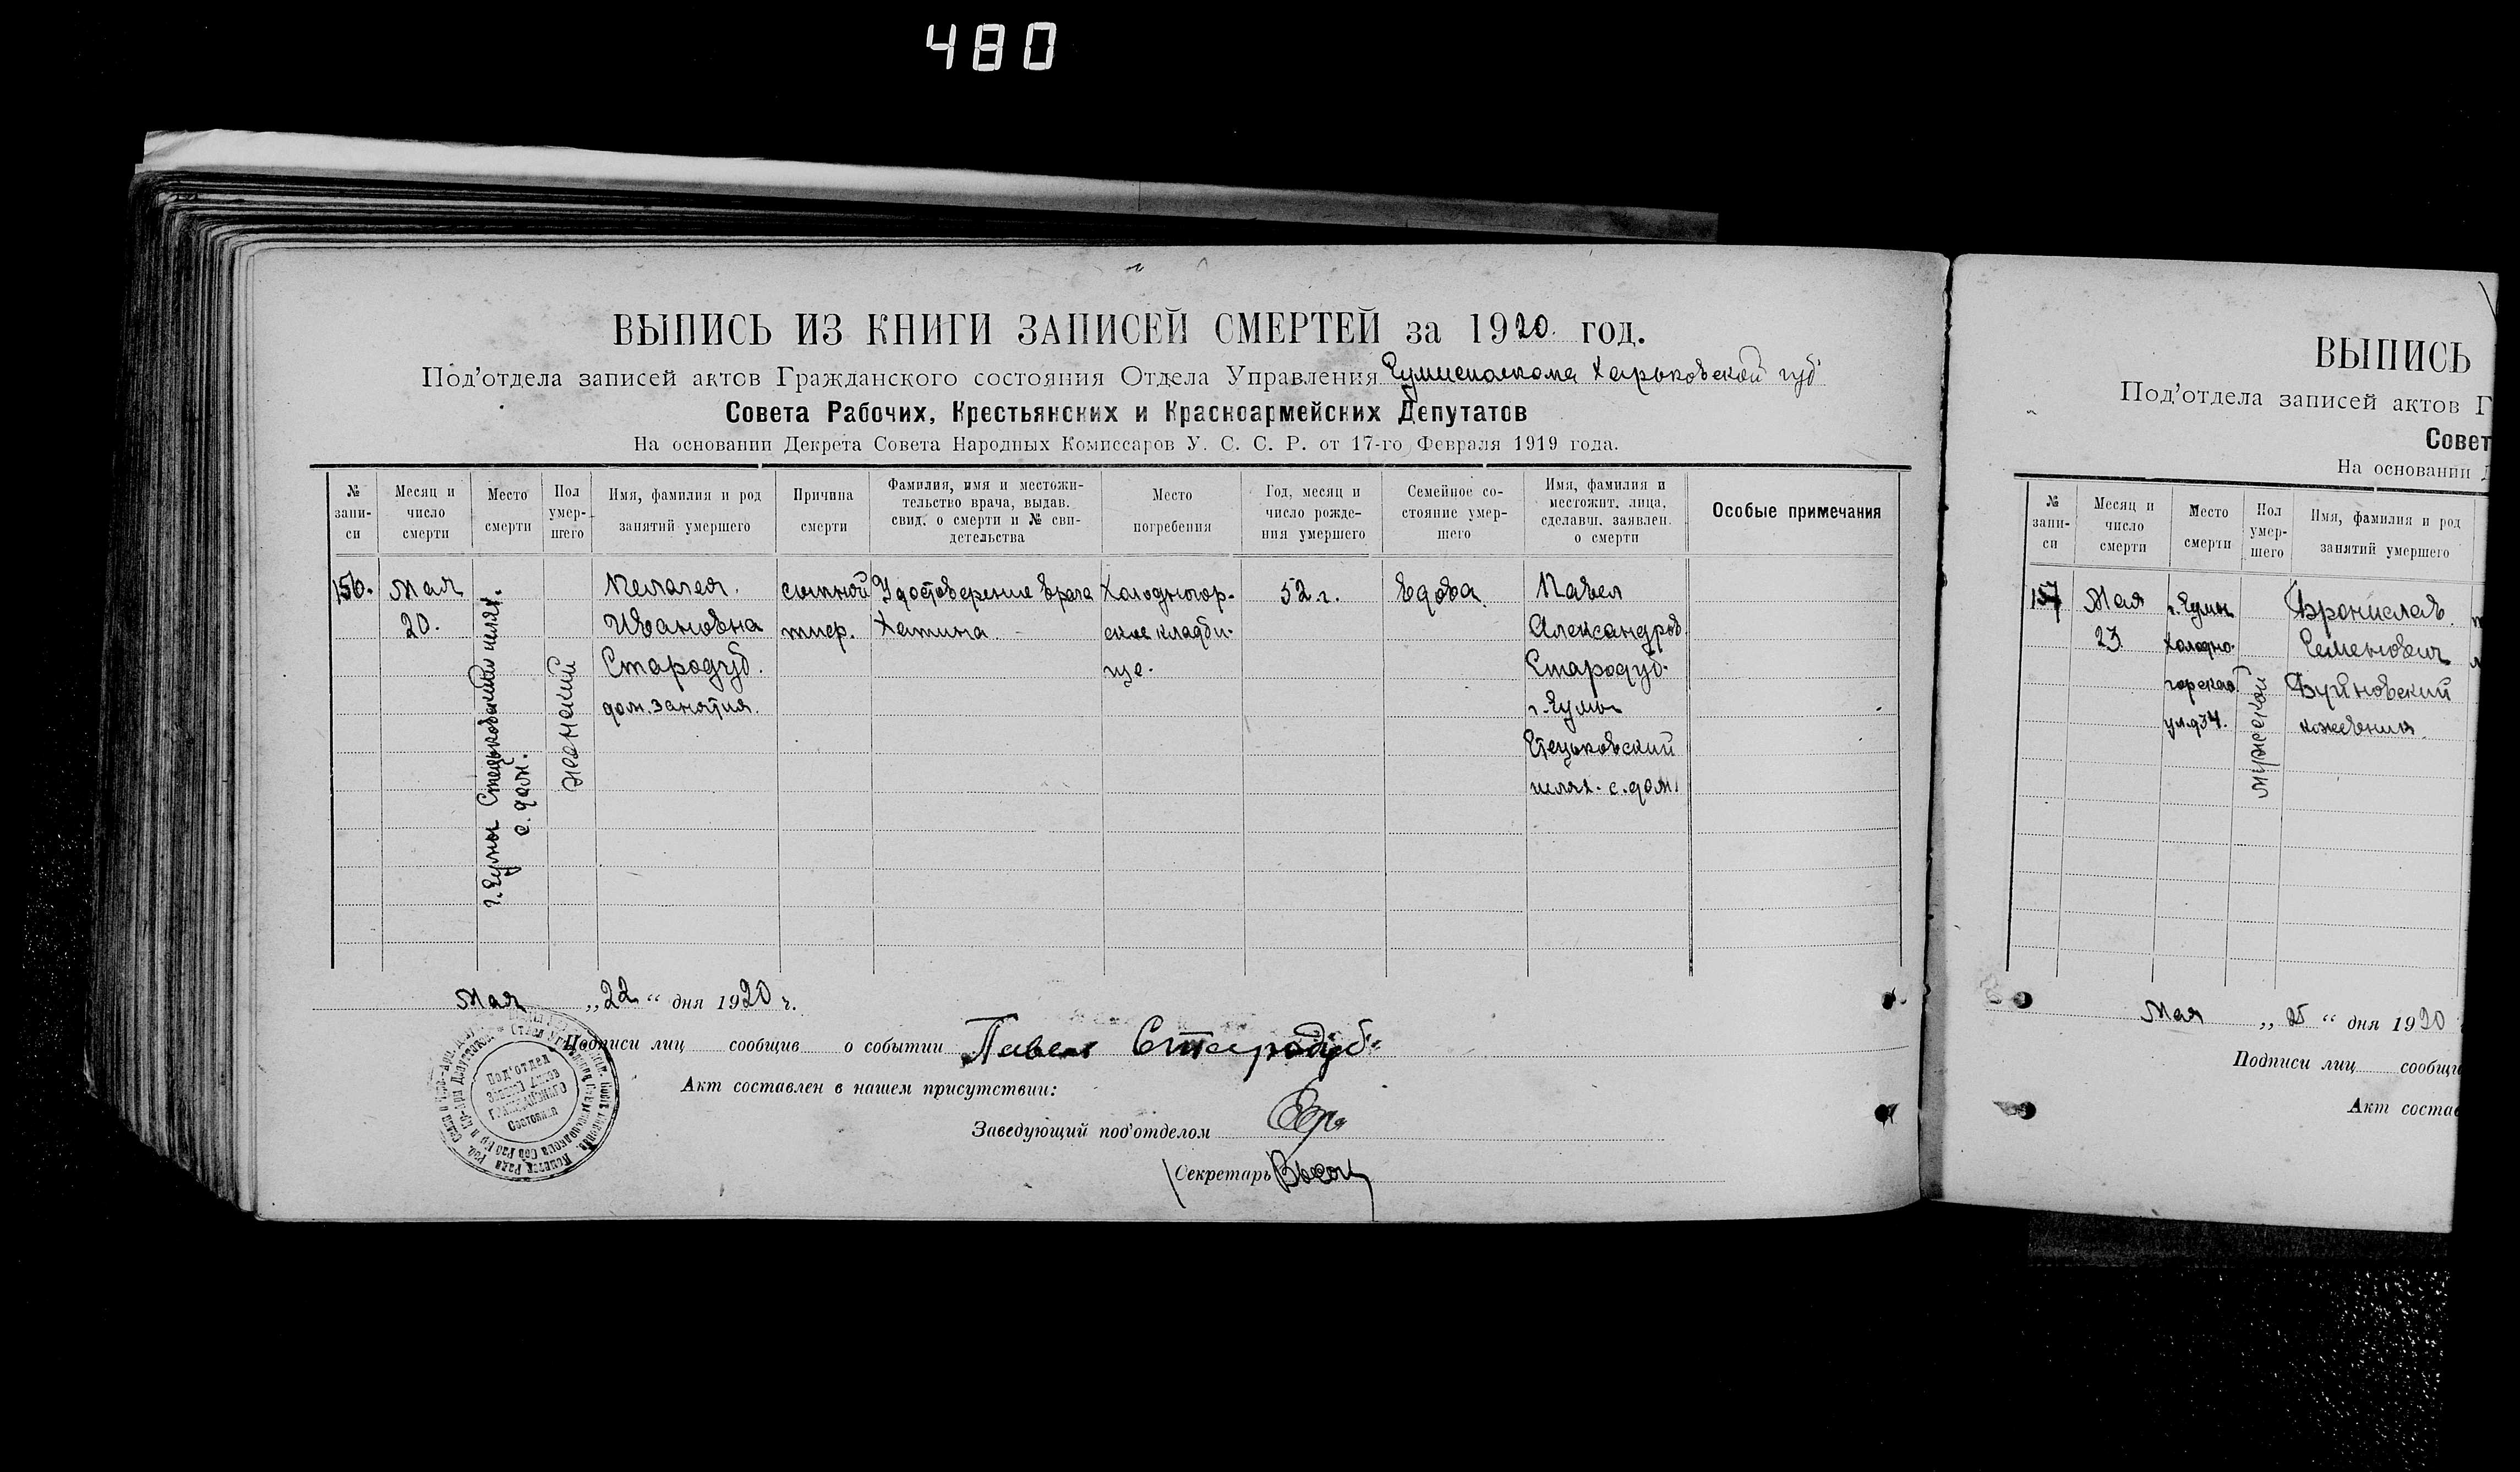 480
ВЫПИСЬ ИЗ КНИГИ ЗАПИСЕЙ СМЕРТЕЙ за 1920 год.
Под'отдела записей актов Гражданского состояния Отдела Управления Сумисполкома Харьковской губ.
Совета Рабочих, Крестьянских и Красноармейских Депутатов
На основании Декрета Совета Народных Комиссаров У. С. С. Р. от 17-го Февраля 1919 года.
№ запи-
си
Месяц и
число
смерти
Место
смерти
Пол
умер-
шего
Имя, фамилия и род
занятий умершего
Причина
смерти
Фамилия, имя и местожи-
тельство врача, выдав.
свид. о смерти и № сви-
детельства
Место
погребения
Год, месяц и
число рожде-
ния умершего
Семейное со-
стояние умер-
шего
Имя, фамилия и
местожит. лица,
сделавш. заявлен.
о смерти
Особые примечания
156.
Мая
20.
г. Сумы Стецьковский шлях.
с. дом.
женский
Пелагея.
Ивановна
Стародуб.
дом. занятия.
сыпной
тиф.
Удостоверение врача
Хатина
Холодногор-
ское кладби-
ще.
52 г.
Вдова.
Павел
Александров.
Стародуб.
г. Сумы
Стецьковский
шлях. с. дом.
Мая „22“ дня 1920 г.
Подписи лиц сообщив о событии Павел Стародуб.
Акт составлен в нашем присутствии:
Заведующий под'отделом
Секретарь
Под'отдел
Записи Актов
ГРАЖДАНСКАГО
Состояния
ВЫПИСЬ
Под'отдела записей актов Г
Совет
На основании Д
№
запи-
си
Месяц и
число
смерти
Место
смерти
Пол
умер-
шего
Имя, фамилия и род
занятий умершего
157
Мая
23.
г. Сумы
Холодно-
горская
ул. д 34.
мужской
Бронислав.
Семенович
Буйновский
кожевник.
Мая „25“ дня 1920
Подписи лиц сообщи
Акт состав